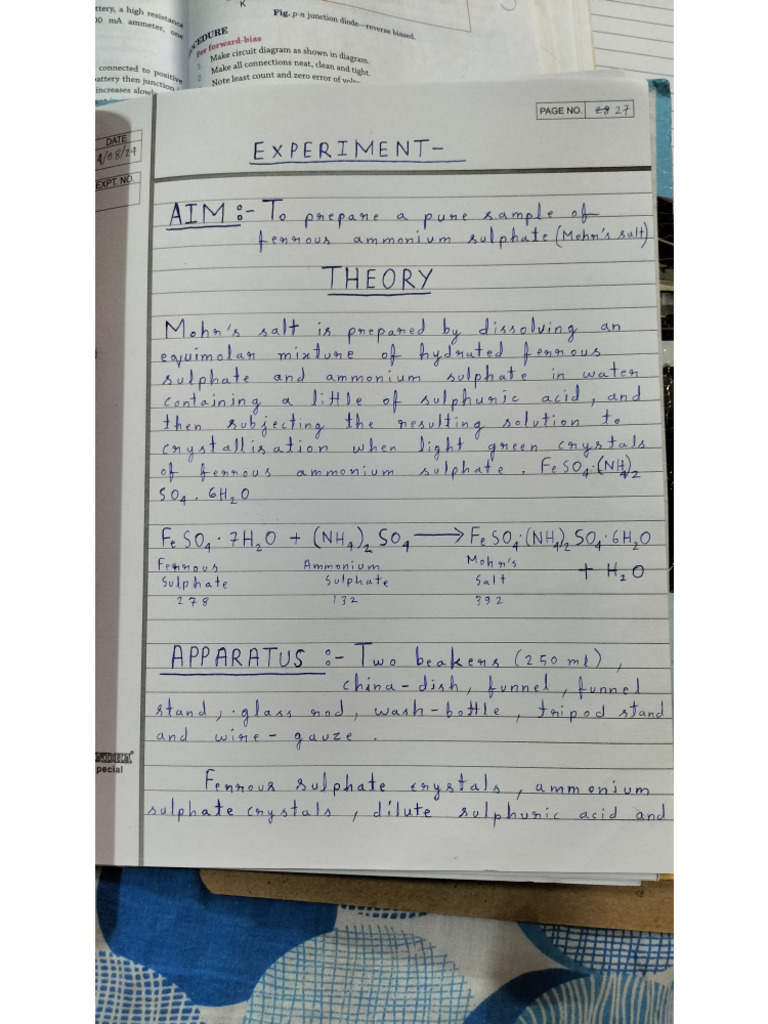 ttery, a high resistance
00 mA ammeter, one
connected to positive
attery then junction
increases slowly
K
Fig. p-n junction diode—reverse biased.
CEDURE
For forward-bias
1. Make circuit diagram as shown in diagram.
2. Make all connections neat, clean and tight.
3. Note least count and zero error of
PAGE NO. 28 27
DATE
/08/24
EXPT. NO.
EXPERIMENT-
AIM :- To prepare a pure sample of
ferrous ammonium sulphate (Mohr's salt)
THEORY
Mohr's salt is prepared by dissolving an
equimolar mixture of hydrated ferrous
sulphate and ammonium sulphate in water
containing a little of sulphuric acid, and
then subjecting the resulting solution to
crystallisation when light green crystals
of ferrous ammonium sulphate. FeSO₄·(NH₄)₂
SO₄. 6H₂O
FeSO₄·7H₂O + (NH₄)₂SO₄ ⟶ FeSO₄·(NH₄)₂SO₄·6H₂O
+ H₂O
Ferrous Ammonium Mohr's
Sulphate Sulphate Salt
278 132 392
APPARATUS :- Two beakers (250 ml),
china-dish, funnel, funnel
stand, glass rod, wash-bottle, tripod stand
and wire-gauze.
Ferrous sulphate crystals, ammonium
sulphate crystals, dilute sulphuric acid and
NIDHA®
pecial